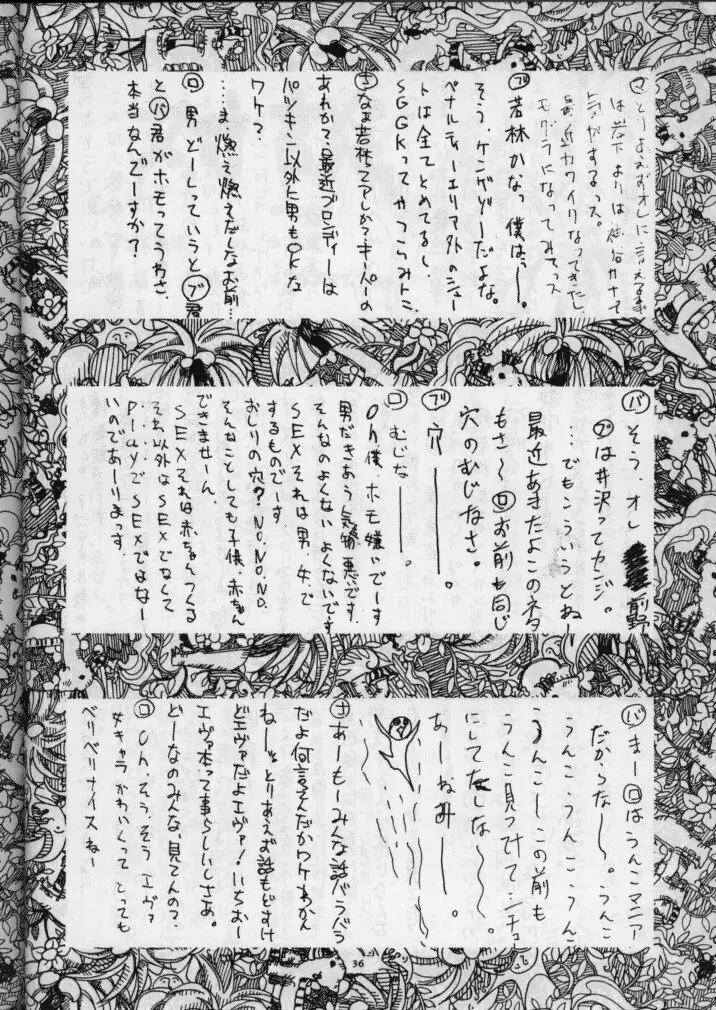 マ とりあえずオレに言える事
は岩下よりは
気がするっス。
最近カワイクなってきたし
モグラになってみてっス
ブ 若林かなっ僕はっー。
そう、ケンゲゾーだよな。
ペナルティーエリア外のシュー
トは全てとめてるし、
SGGKってやつらみトニ
キ なぁ若林ってアレか?キーパーの
あれか?、最近ブロンディーは
パツキン以外に男もOKな
ワケ?
…ま、燃え燃えだしなお前…
ロ 男どーしっていうとブ君
とバ君がホモってうわさ
本当なんでーすか?
バ そう、オレ 前野
ブは井沢ってカンジ。
…でもこういうとねー
最近あきたよこのネタ
もさ〜ロお前も同じ
穴のむじなさ。
ブ 穴ー。
ロ むじなー。
Oh僕、ホモ嫌いでーす
男だきあう気物悪です。
そんなのよくないよくないです
SEXそれは男、女で
するものでーす。
おしりの穴?NO.NO.NO.
そんなことしても子供、赤ちゃん
できませーん
SEXそれは赤ちゃんつくる
それ以外はSEXでなくして
……PLAYでSEXではなー
いのであーりまっす。
バ まーロはうんこマニア
だからなー〜。うんこ
うんこ、うんこ、うんこ
うんこーこの前も
うんこ見ってけてンチュ
にしてたしな〜〜。
あーねみー〜。
キ あーもーみんな話バラバラ
だよ何言えんだかワケわかん
ねーっ。とりあえず話もどすけ
どエヴァだよエヴァ!いちおー
エヴァ本って事らしいしさあ。
どーなのみんな、見てんの?、
ロ Oh、そう、そうエヴァ
女キャラかわいくってとっても
ベリーベリナイスねー
36